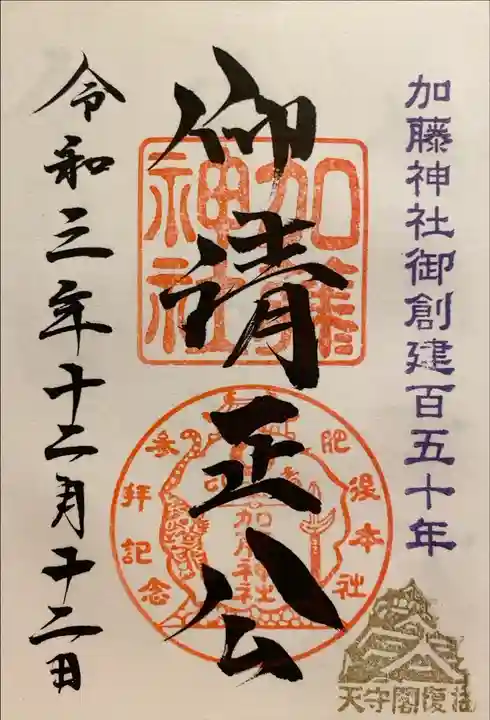 加藤神社御創建百五十年
仰清正公
令和三年十二月十二日
加藤
神社
肥後本社
参拝記念
加藤神社
天守閣復活